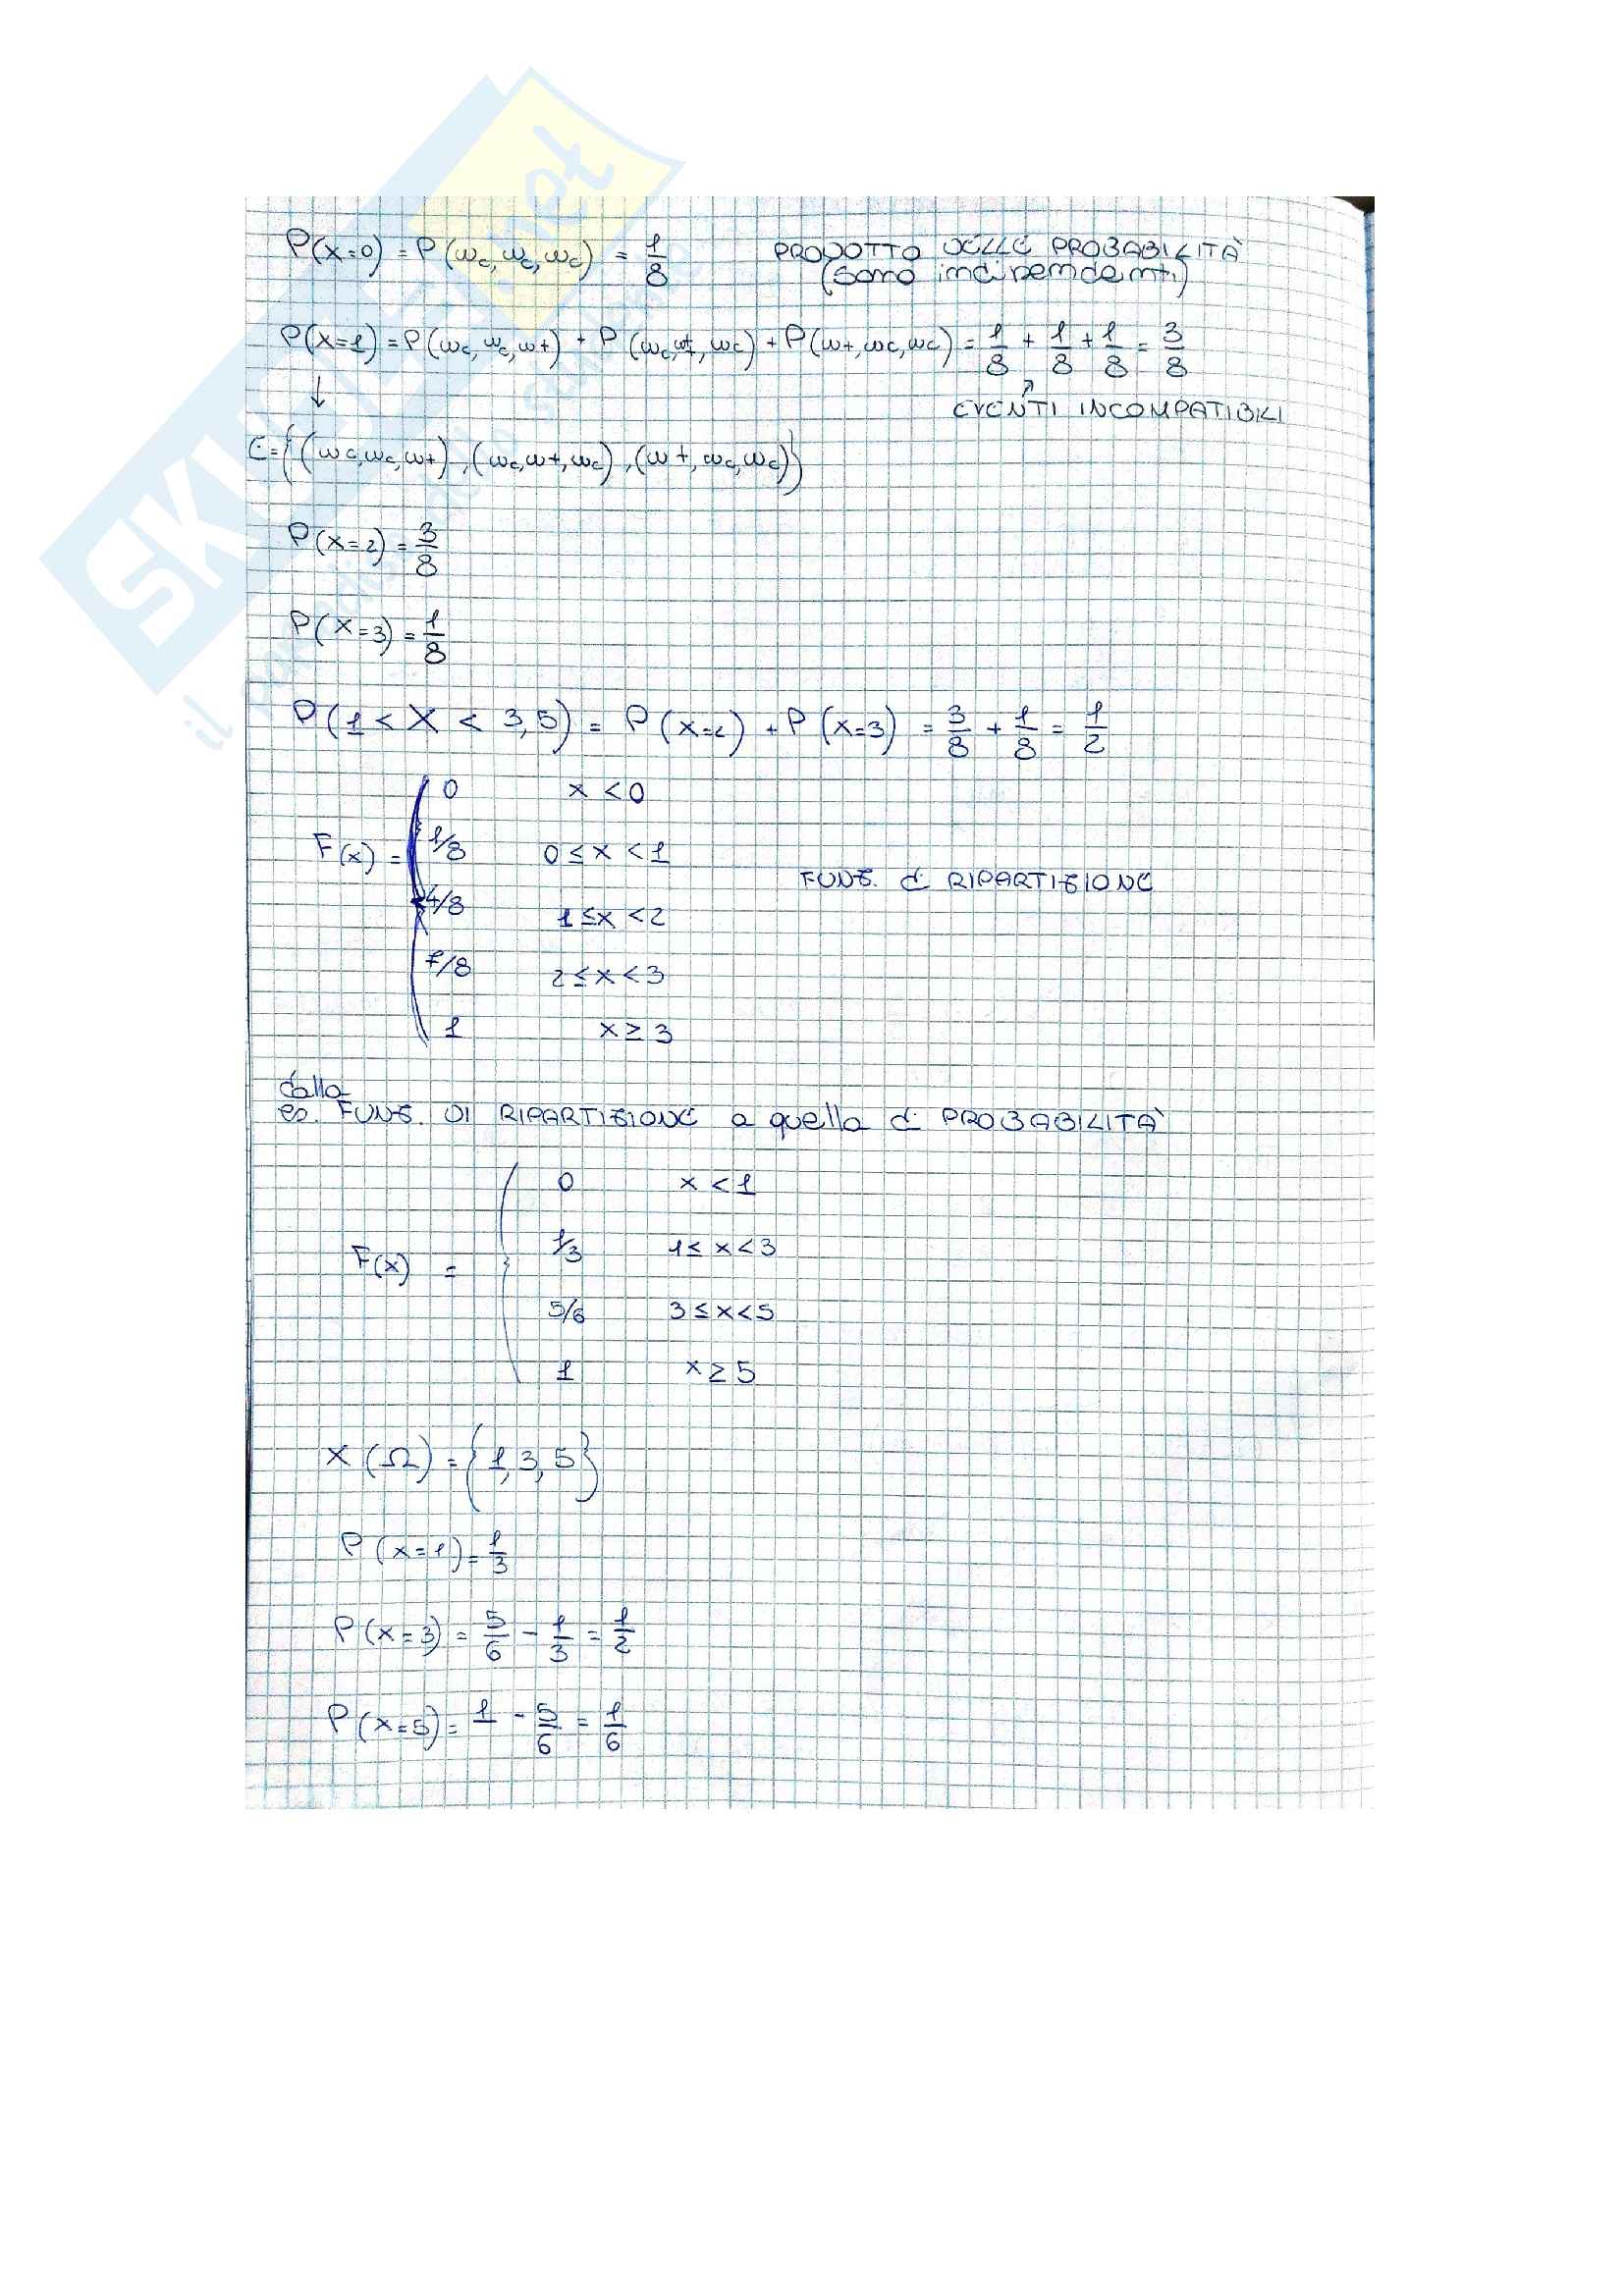 SKUOLA.net
P(x=0) = P(ωc, ωc, ωc) = 1/8 PRODOTTO DELLE PROBABILITÀ
(sono indipendenti)
P(x=1) = P(ωc, ωc, ωt) + P(ωc, ωt, ωc) + P(ωt, ωc, ωc) = 1/8 + 1/8 + 1/8 = 3/8
↓ ↗
EVENTI INCOMPATIBILI
E = {(ωc, ωc, ωt), (ωc, ωt, ωc), (ωt, ωc, ωc)}
P(x=2) = 3/8
P(x=3) = 1/8
P(1 < X < 3,5) = P(x=2) + P(x=3) = 3/8 + 1/8 = 1/2
0 x < 0
F(x) = { 1/8 0 ≤ x < 1
FUNZ. di RIPARTIZIONE
4/8 1 ≤ x < 2
7/8 2 ≤ x < 3
1 x ≥ 3
dalla
es. FUNZ. DI RIPARTIZIONE a quella di PROBABILITÀ
0 x < 1
1/3 1 ≤ x < 3
F(x) = {
5/6 3 ≤ x < 5
1 x ≥ 5
X(Ω) = {1, 3, 5}
P(x=1) = 1/3
P(x=3) = 5/6 - 1/3 = 1/2
P(x=5) = 1 - 5/6 = 1/6